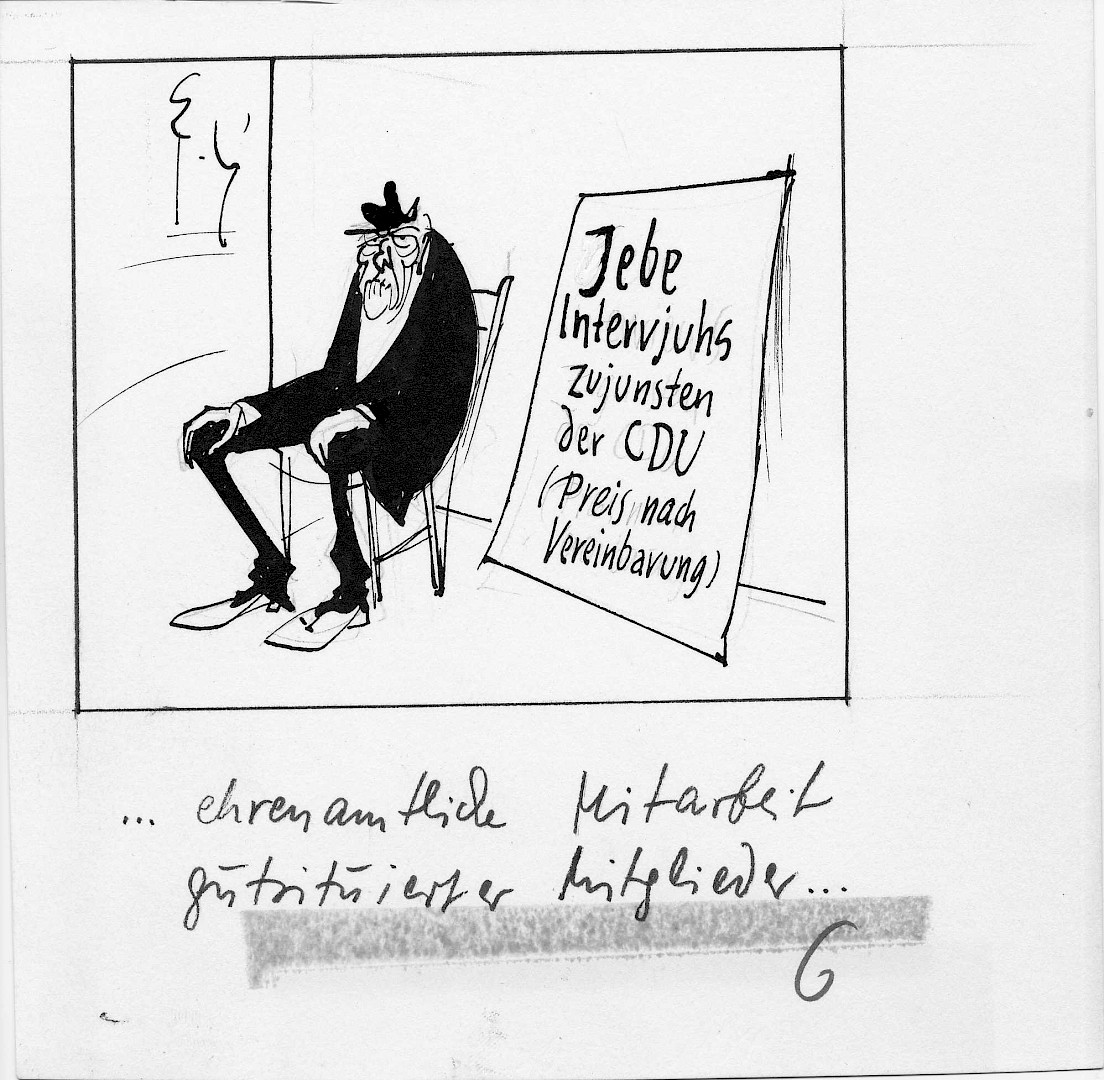 Jebe
Intervjuhs
zujunsten
der CDU
(Preis nach
Vereinbarung)
... ehrenamtliche Mitarbeit
gutsituierter Mitglieder...
6